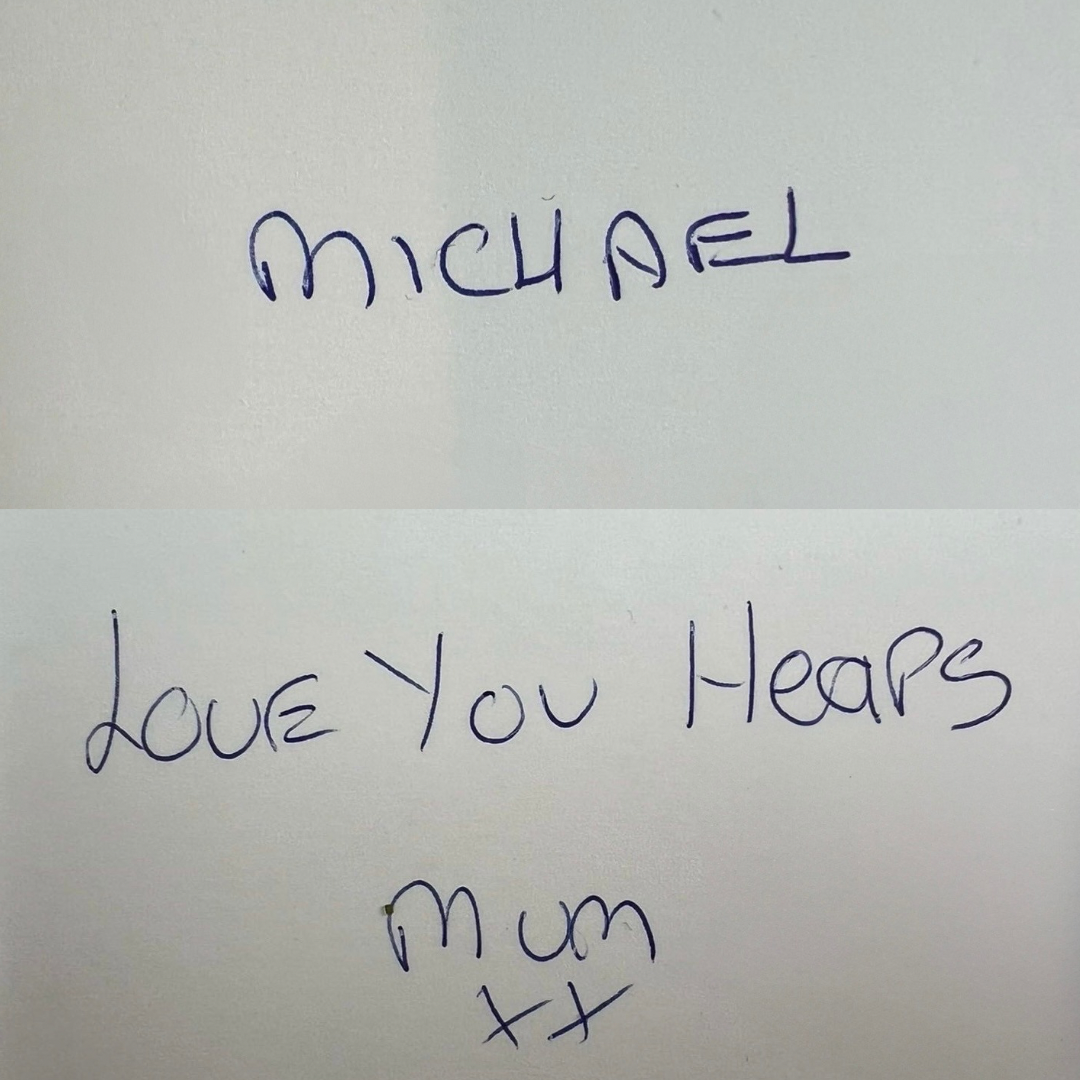 MICHAEL
LOVE YOU HeaPS
Mum
xx